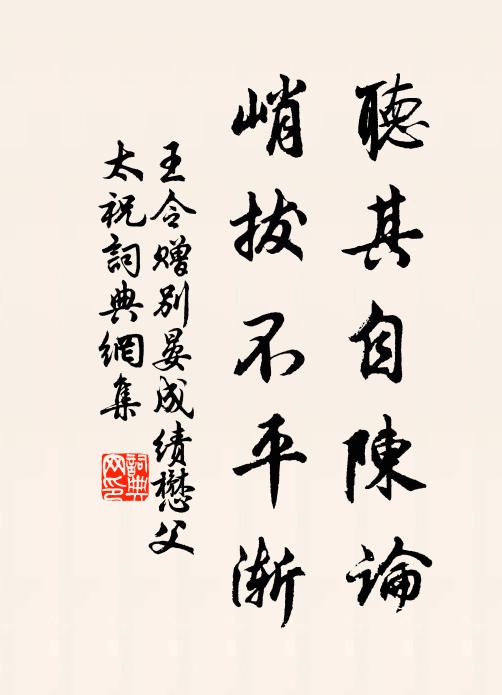 聽其自陳論
峭拔不平漸
王令贈別晏成績懋父
太祝詞典網集
詞典網印